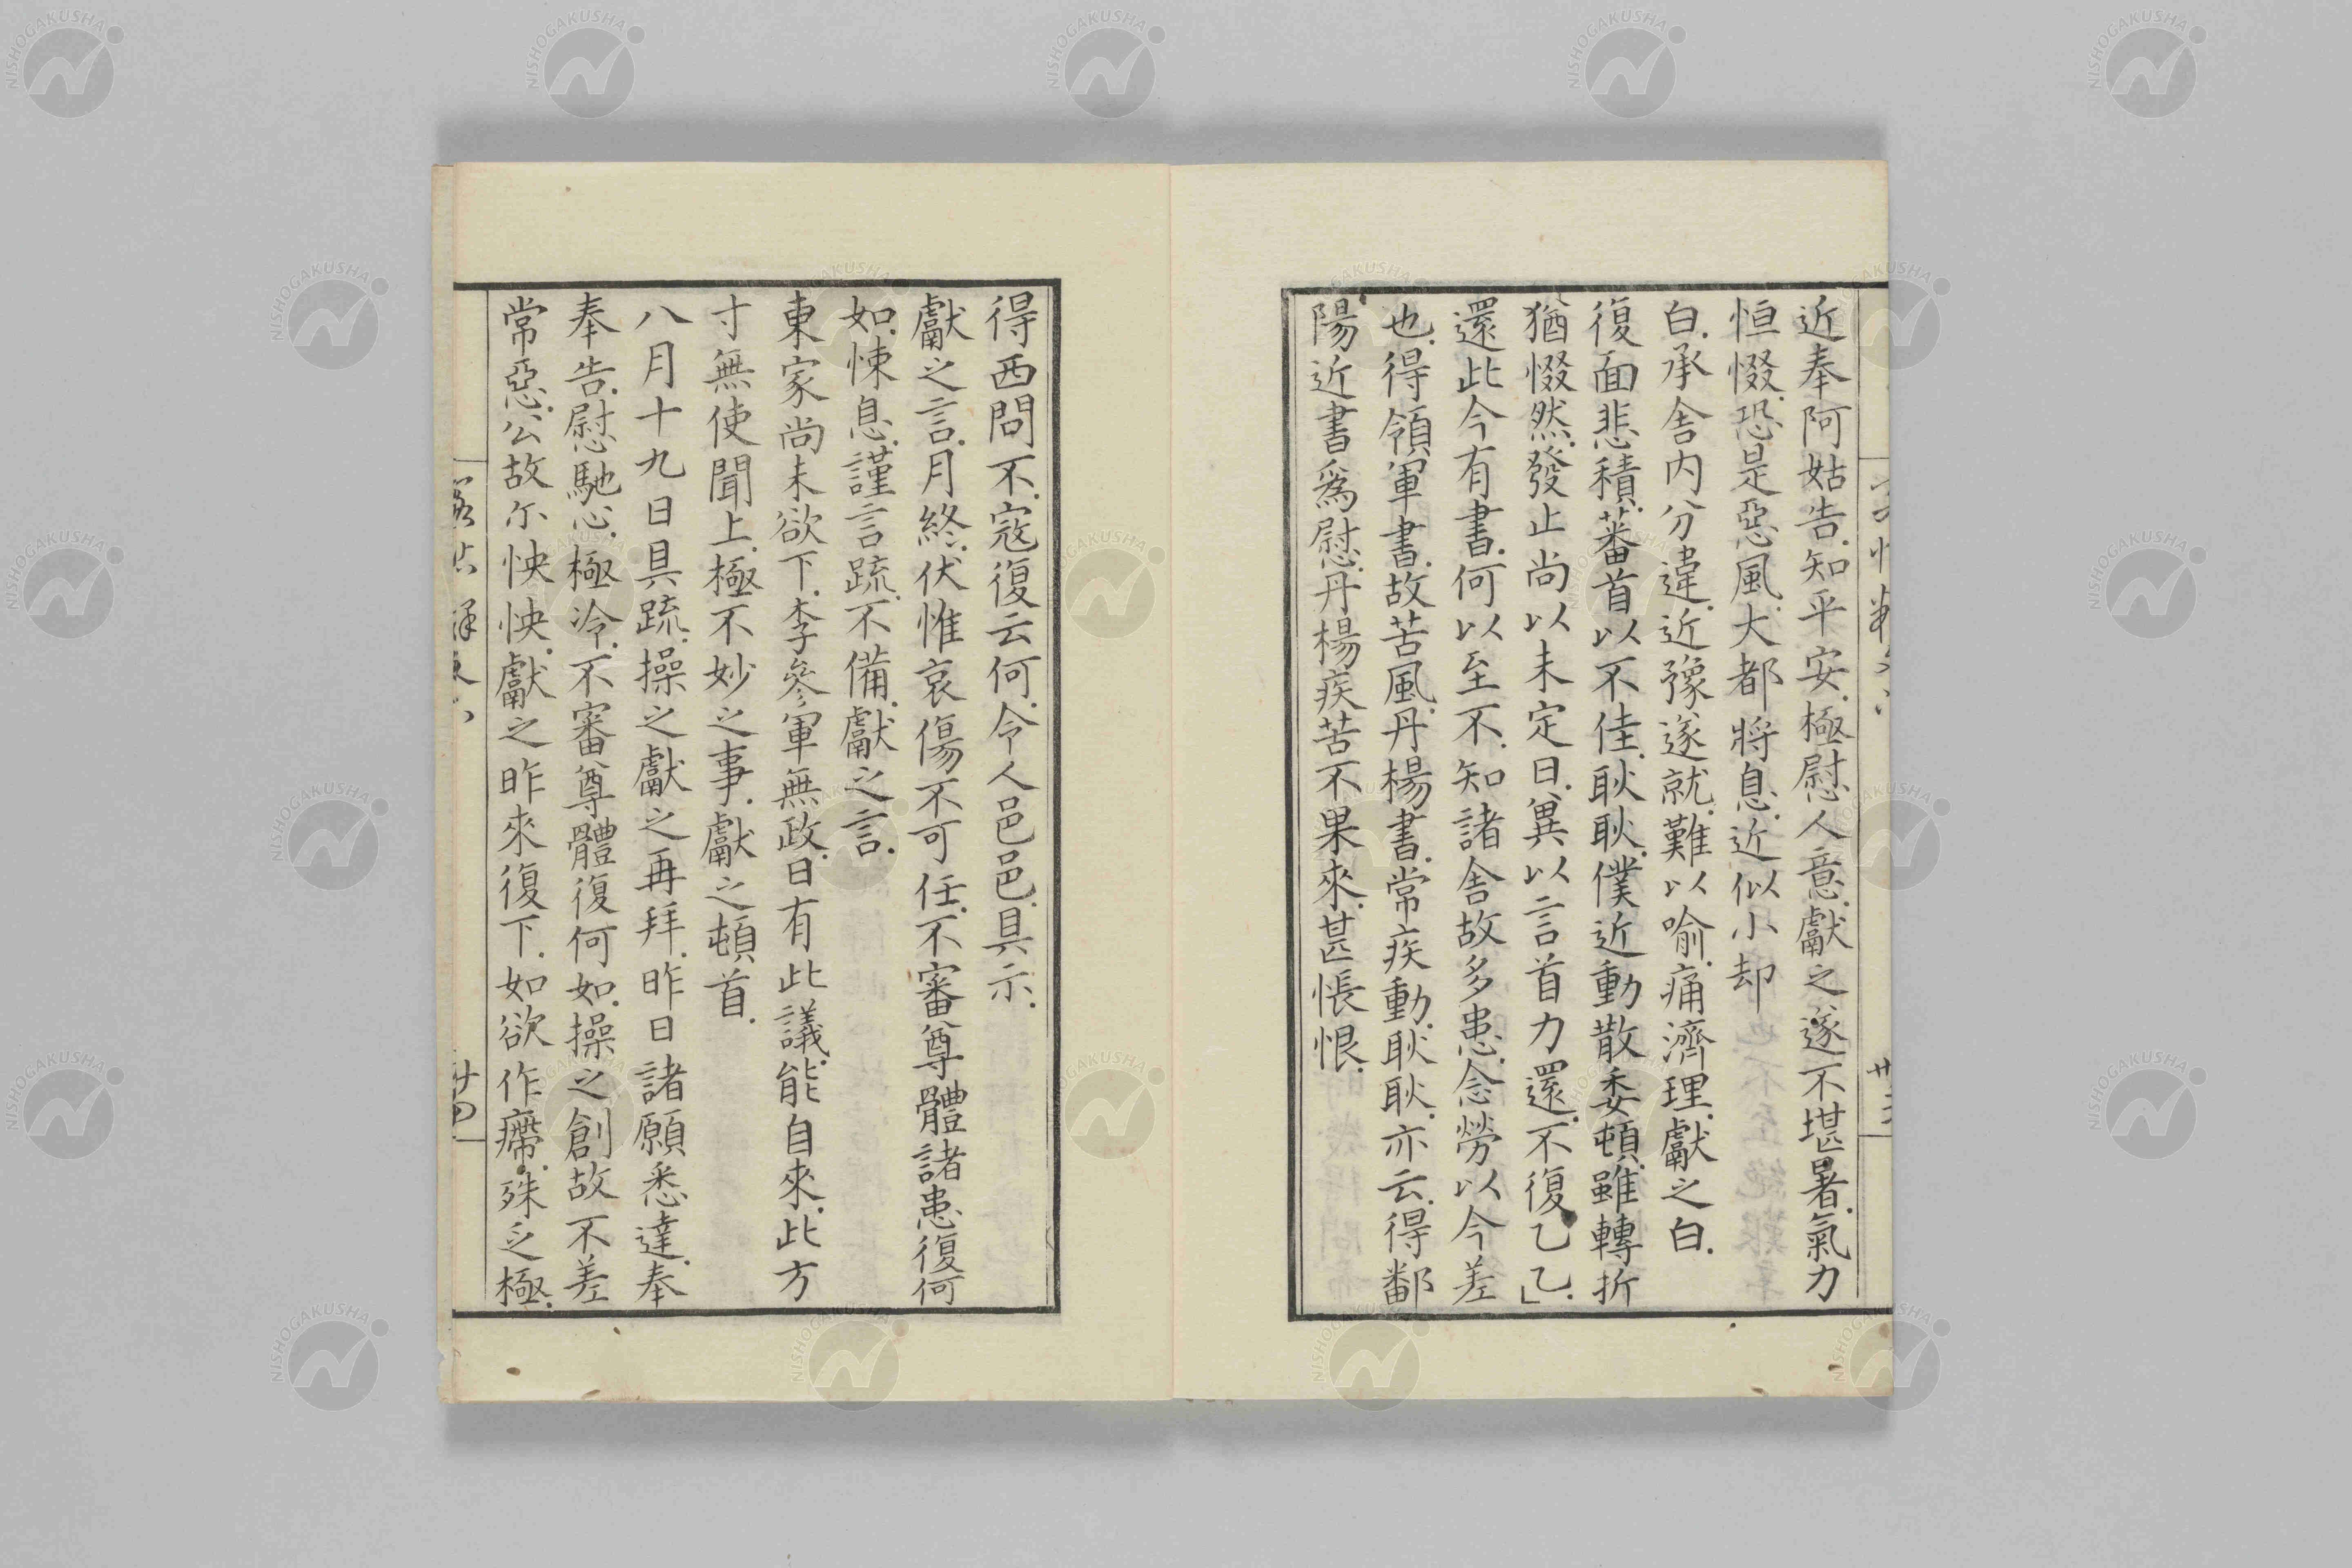 近奉阿姑告.知平安.極慰人意.獻之遂不堪暑.氣力
恒惙.恐是惡風.大都將息.近似小却
白.承舍内分違.近豫遂就.難以喻.痛濟理.獻之白.
復面悲積.蕃首以不佳.耿耿.僕近動散委頓.雖轉折
猶惙然.發止尚以未定日.異以言首力還.不復乙乙」.
還此今有書.何以至不.知諸舍故多患.念勞以今差
也.得領軍書.故苦風.丹楊書.常疾動.耿耿.亦云.得鄱
陽近書爲慰.丹楊疾苦不果來.甚悵恨.
得西問不.寇復云何.令人邑邑.具示.
獻之言.月終.伏惟哀傷不可任.不審尊體諸患復何
如.悚息.謹言疏.不備.獻之言.
東家尚未欲下.李參軍無政.日有此議.能自來.此方
寸無使聞上.極不妙之事.獻之頓首.
八月十九日具疏.操之獻之再拜.昨日諸願悉達.奉
奉告.慰馳心.極冷.不審尊體復何如.操之創故不差
常惡.公故尓怏怏.獻之昨來復下.如欲作癤.殊乏極.
廿四